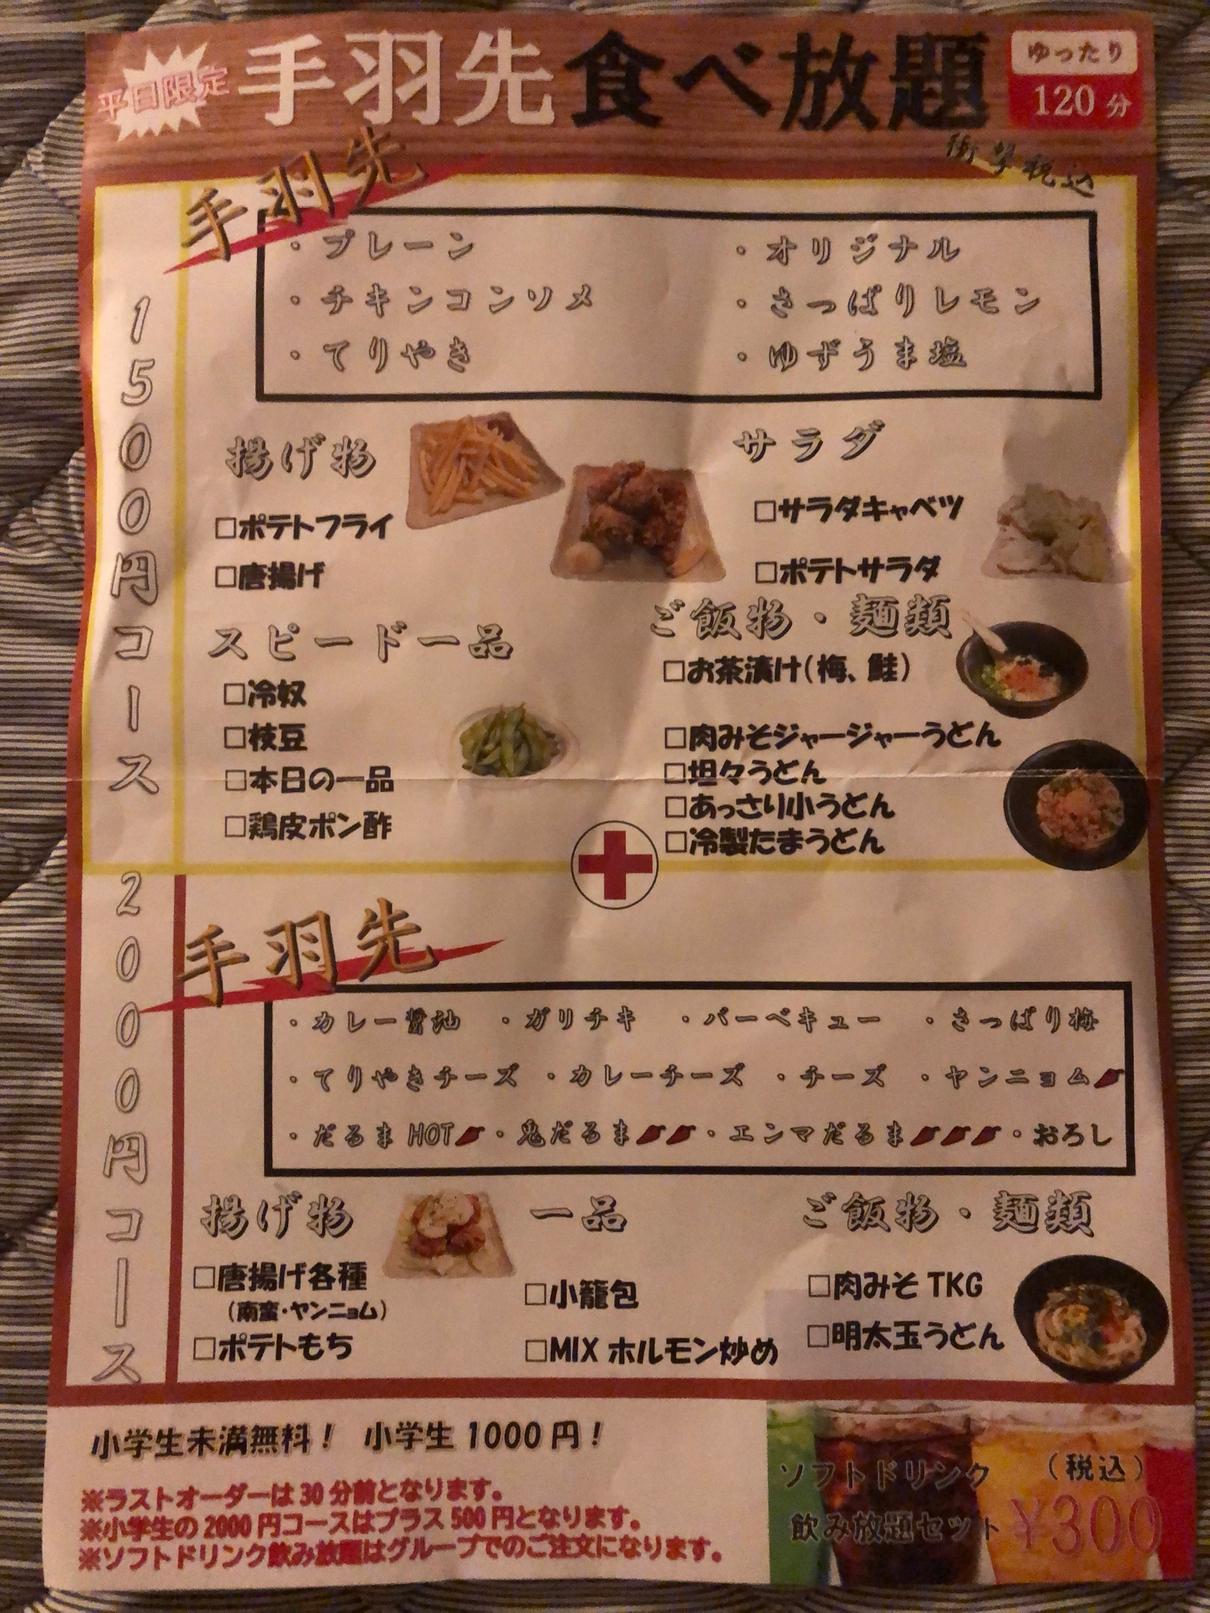 平日限定
手羽先食べ放題
ゆったり
120分
衝撃税込
1500円コース
手羽先
・プレーン ・オリジナル
・チキンコンソメ ・さっぱりレモン
・てりやき ・ゆずうま塩
揚げ物
□ポテトフライ
□唐揚げ
サラダ
□サラダキャベツ
□ポテトサラダ
スピード一品
□冷奴
□枝豆
□本日の一品
□鶏皮ポン酢
ご飯物・麺類
□お茶漬け(梅、鮭)
□肉みそジャージャーうどん
□坦々うどん
□あっさり小うどん
□冷製たまうどん
2000円コース
手羽先
・カレー醤油 ・ガリチキ ・バーベキュー ・さっぱり梅
・てりやきチーズ ・カレーチーズ ・チーズ ・ヤンニョム
・だるまHOT ・鬼だるま ・エンマだるま ・おろし
揚げ物
□唐揚げ各種
(南蛮・ヤンニョム)
□ポテトもち
一品
□小籠包
□MIX ホルモン炒め
ご飯物・麺類
□肉みそ TKG
□明太玉うどん
小学生未満無料! 小学生 1000 円!
※ラストオーダーは 30 分前となります。
※小学生の 2000 円コースはプラス 500 円となります。
※ソフトドリンク飲み放題はグループでのご注文になります。
ソフトドリンク (税込)
飲み放題セット ¥300